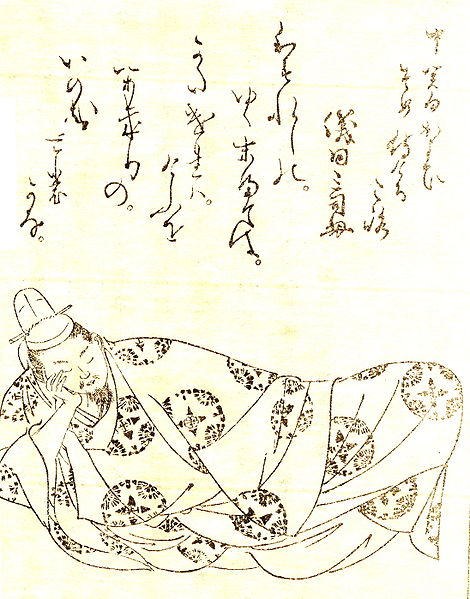 中関白かよひ
そめ侍ける
ころ
儀同三司母
わすれしの。
ゆく末まては。
かたけれハ。
けふを
かきりの。
いのち
ともかな。